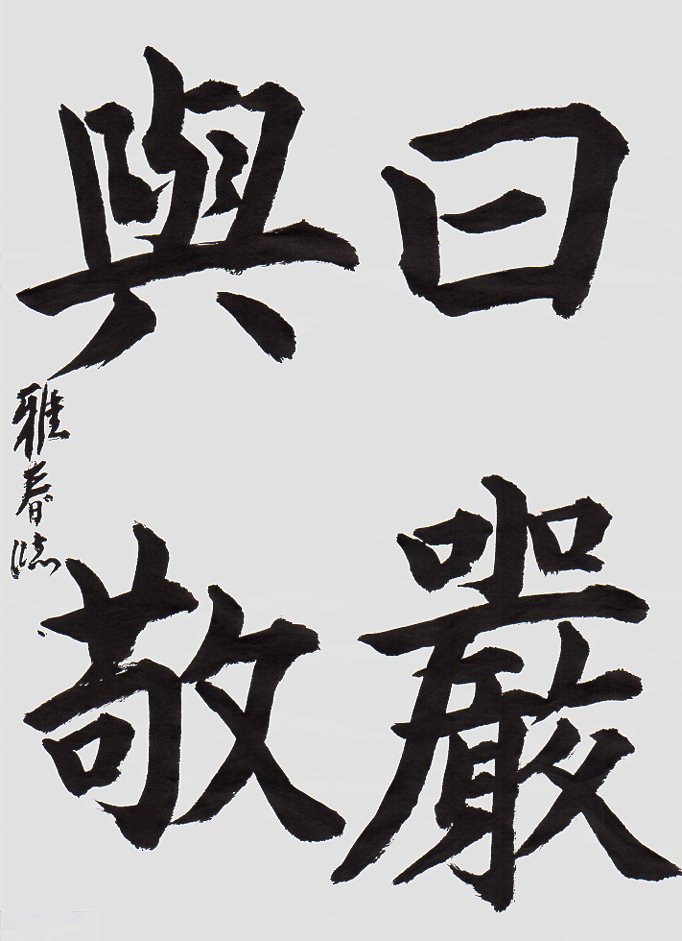 曰嚴
與敬
雅春臨